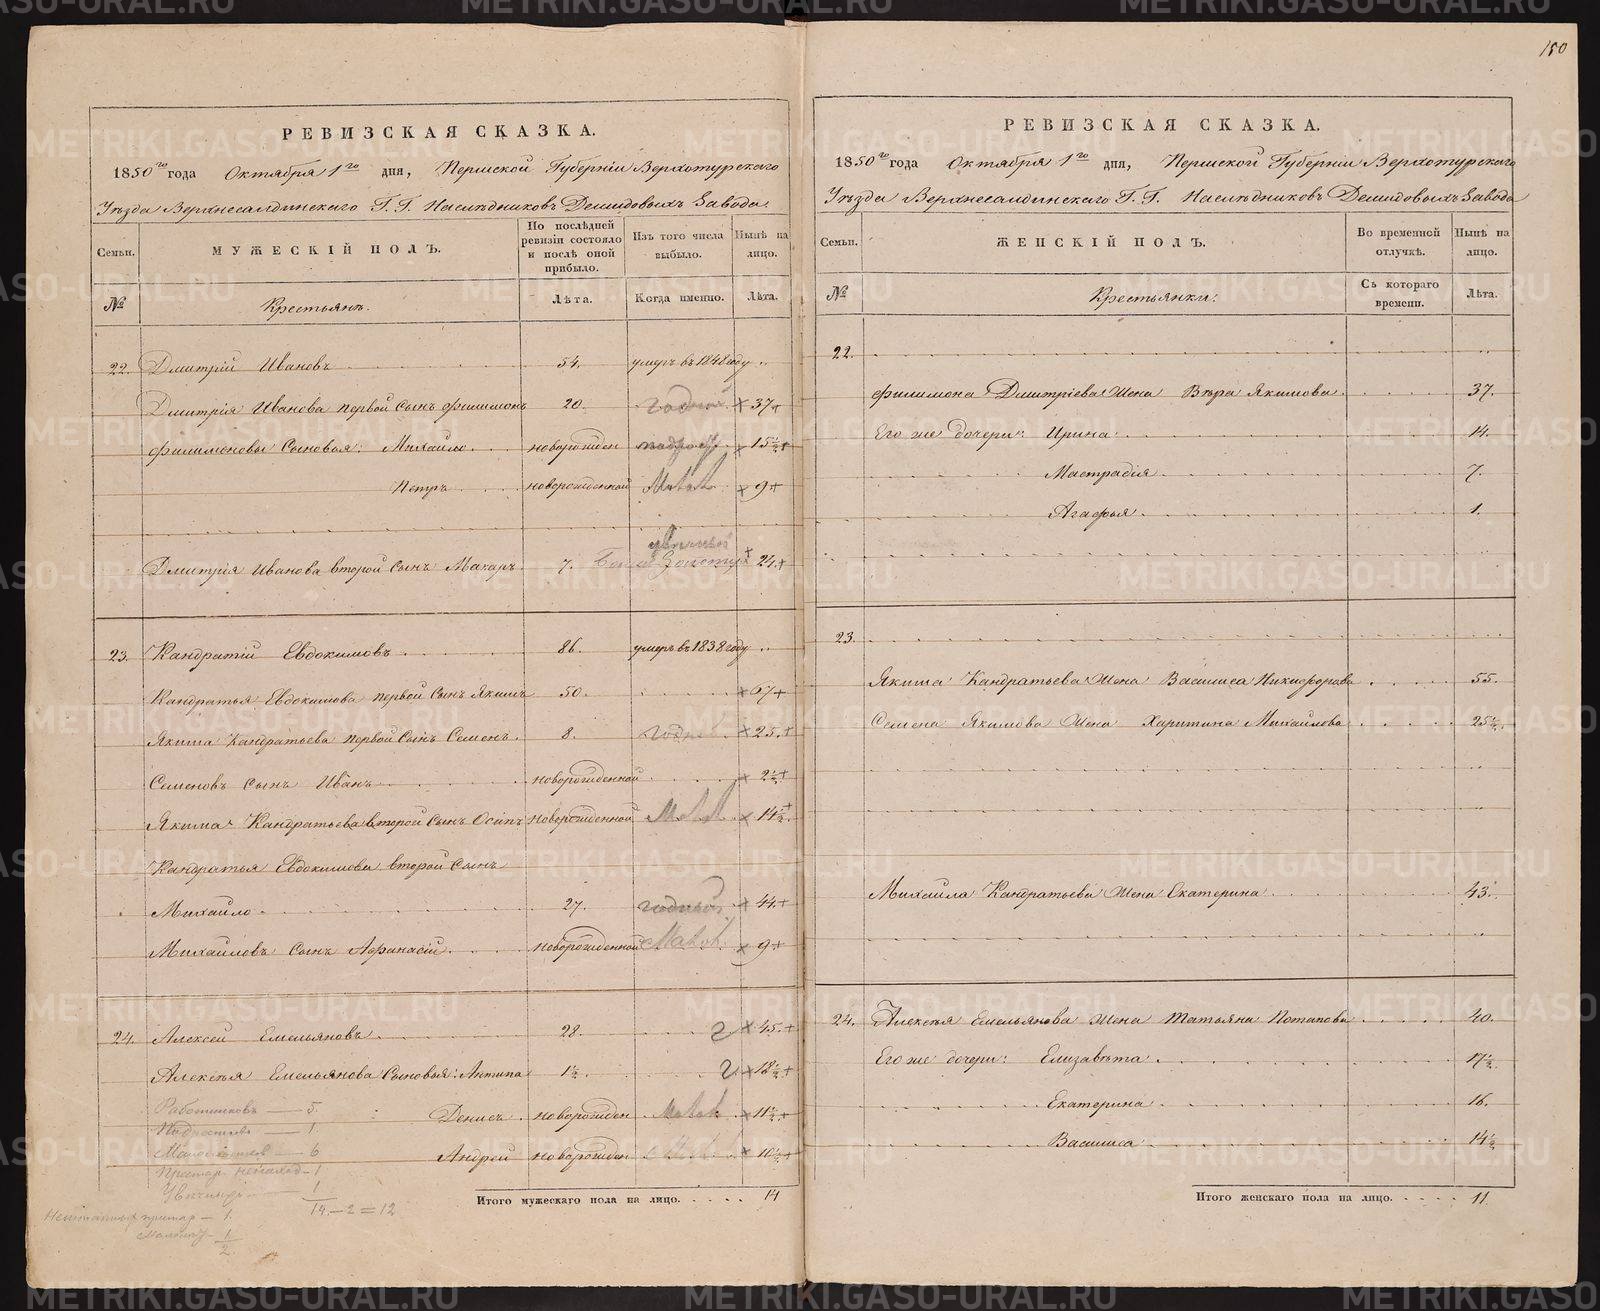 150
РЕВИЗСКАЯ СКАЗКА.
1850го года Октября 1го дня, Пермской Губерніи Верхотурскаго
Уѣзда Верхнесалдинскаго Г.Г. Наслѣдниковъ Демидовыхъ Завода.
Семьи. МУЖЕСКІЙ ПОЛЪ. По послѣдней ревизіи состояло и послѣ оной прибыло. Изъ того числа выбыло. Нынѣ на лицо.
№ Крестьянъ. Лѣта. Когда именно. Лѣта.
22. Дмитрій Ивановъ 54. умеръ въ 1848 году
Дмитрія Иванова первой сынъ Филимонъ 20. годной 37
Филимоновы Сыновья: Михайло новорожден 15½
Петръ новорожденной Малол 9
увѣчный
Дмитрія Иванова второй сынъ Макаръ 7. 24
23. Кандратій Евдокимовъ 86. умеръ въ 1838 году
Кандратья Евдокимова первой сынъ Якимъ 50. 67
Якима Кандратьева первой сынъ Семенъ. 8. годной 25.
Семеновъ сынъ Иванъ новорожденной 2½
Якима Кандратьева второй сынъ Осипъ новорожденной Мал 14½
Кандратья Евдокимова второй сынъ
Михайло 27. годный 44
Михайловъ сынъ Афанасій новорожденной Малол 9
24. Алексей Емельяновъ 28. г 45.
Алексѣя Емельянова Сыновья: Антипа 1½ г. 18½
Денисъ новорожден Малол 11½
Андрей новорожден 10½
Работниковъ — 5.
Подростковъ — 1
Малолѣтковъ — 6
Увѣчныхъ — 1
14 – 2 = 12
1.
1
2
Итого мужескаго пола на лицо. 14
РЕВИЗСКАЯ СКАЗКА.
1850го года Октября 1го дня, Пермской Губерніи Верхотурскаго
Уѣзда Верхнесалдинскаго Г.Г. Наслѣдниковъ Демидовыхъ Завода
Семьи. ЖЕНСКІЙ ПОЛЪ. Во временной отлучкѣ. Нынѣ на лицо.
№ Крестьянки. Съ котораго времени. Лѣта.
22.
Филимона Дмитріева Жена Вѣра Якимова 37.
Его же дочери: Ирина 14.
Мастрадія 7.
Агафья 1.
23.
Якима Кандратьева Жена Василиса Никифорова 55.
Семена Якимова Жена Харитина Михайлова 25½
Михайла Кандратьева Жена Екатерина 43.
24. Алексѣя Емельянова Жена Татьяна Потапова 40.
Его же дочери: Елизавѣта 17½
Екатерина 16.
Василиса 14½
Итого женскаго пола на лицо. 11.
METRIKI.GASO-URAL.RU